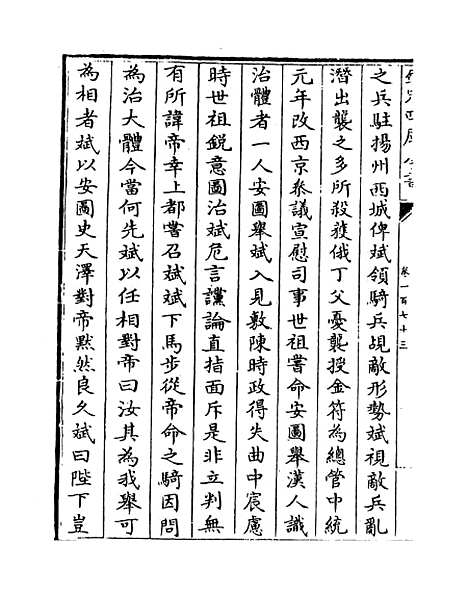 欽定四庫全書
卷一百七十三
之兵駐揚州西城俾斌領騎兵覘敵形勢斌視敵兵亂
潛出襲之多所殺獲俄丁父憂襲授金符為總管中統
元年改西京叅議宣慰司事世祖嘗命安圖舉漢人識
治體者一人安圖舉斌入見敷陳時政得失曲中宸慮
時世祖鋭意圖治斌危言讜論直指面斥是非立判無
有所諱帝幸上都嘗召斌斌下馬步從帝命之騎因問
為治大體今當何先斌以任相對帝曰汝其為我舉可
為相者斌以安圖史天澤對帝黙然良久斌曰陛下豈